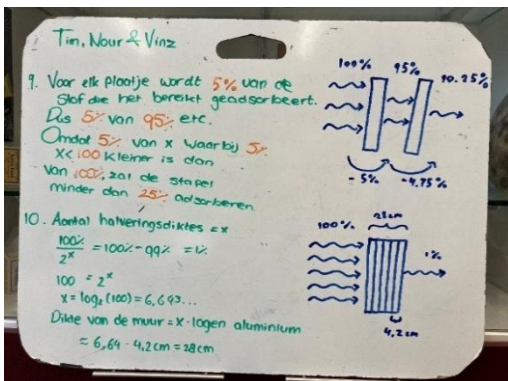 Tim, Nour & Vinz
9. Voor elk plaatje wordt 5% van de
stof die het bereikt geadsorbeert.
Dus 5% van 95% etc.
Omdat 5% van x waarbij
x<100 kleiner is dan 5%
van 100%, zal de stapel
minder dan 25% adsorberen
100% 95% 90.25%
-5% -4.75%
10. Aantal halveringsdiktes = x
100% / 2^x = 100% - 99% = 1%
100 = 2^x
x = log₂(100) = 6,643...
Dikte van de muur = x · lagen aluminium
= 6,64 · 4,2cm = 28cm
28cm
100% 1%
4,2cm